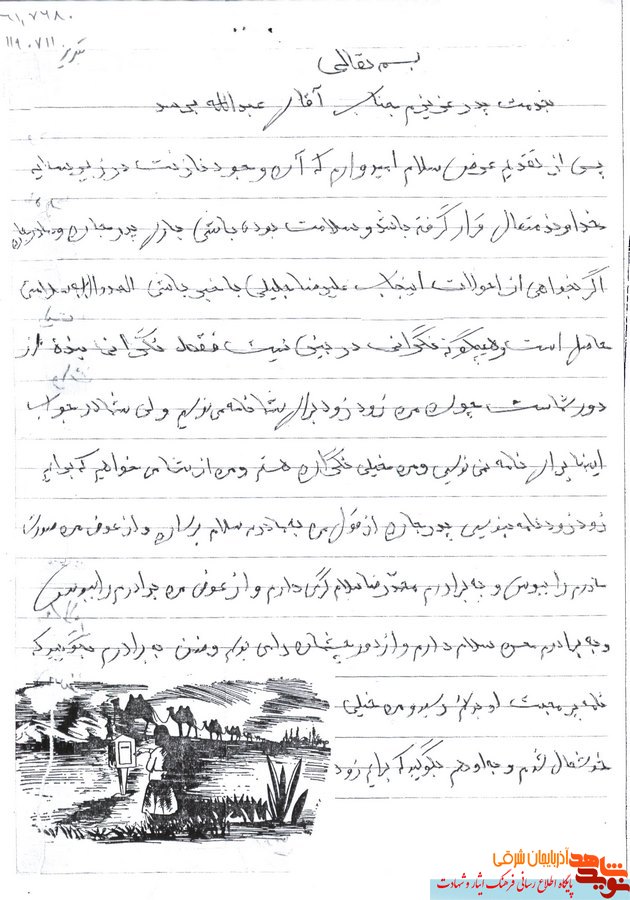 ۶۱,۷۶۸۰
۱۱۹۰۷۱۱
تبریز
بسم تعالی
بخدمت پدر عزیزم جناب آقای عبدالله
پس از تقدیم عرض سلام امیدوارم که آن وجود نازنینت در زیر سایه
خداوند متعال قرار گرفته باشد و سلامت بوده باشی باری پدر جان و مادر جان
اگر بخواهی از احولات اینجانب علیرضا جلیلی باخبر باشی الحمدالله سلامتی
حاصل است و هیچگونه نگرانی در بین نیست فقط نگرانی بنده از
دور شماست چون من زود زود برای شما نامه می نویسم ولی شما در جواب
اینها برای نامه نمی نویسی و من خیلی نگران هستم و من از شما می خواهم که برایم
زود زود نامه بنویسی پدر جان از قول من به مادرم سلام برسان و از عوض من صورت
مادرم را ببوس و به برادرم محمدرضا سلام گرمی دارم و از عوض من برادرم را ببوس
و به برادرم حسن سلام دارم و از دور چشمان را می بوسم و به برادرم بگویید که
نامه پر محبت او برایم رسید و من خیلی
خوشحال شدم و به او هم بگویید که برایم زود
نوید شاهد
آذربایجان شرقی
پایگاه اطلاع رسانی فرهنگ ایثار و شهادت